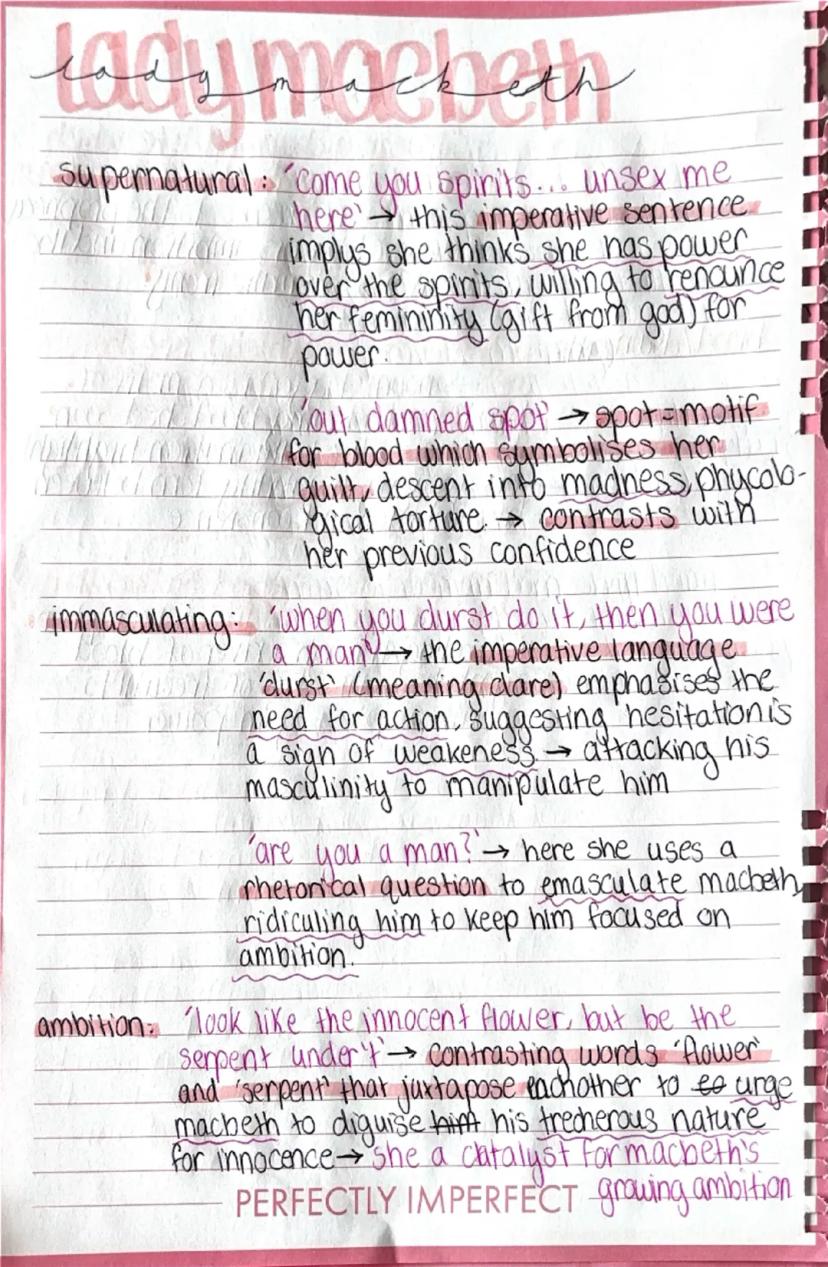 lady macbeth
lady macbeth
supernatural: 'come you spirits... unsex me
here' → this imperative sentence
implys she thinks she has power
over the spirits, willing to renounce
her femininity (gift from god) for
power.
'out damned spot' → spot = motif
for blood which symbolises her
guilt, descent into madness, phycolo-
gical torture. → contrasts with
her previous confidence
immasculating: 'when you durst do it, then you were
a man' → the imperative language
'durst' (meaning dare) emphasises the
need for action, suggesting hesitation is
a sign of weakeness → attacking his
masculinity to manipulate him
'are you a man?' → here she uses a
rhetorical question to emasculate macbeth,
ridiculing him to keep him focused on
ambition.
ambition: 'look like the innocent flower, but be the
serpent under't' → contrasting words 'flower'
and 'serpent' that juxtapose eachother to urge
macbeth to diguise his trecherous nature
for innocence → she a catalyst for macbeth's
growing ambition
PERFECTLY IMPERFECT